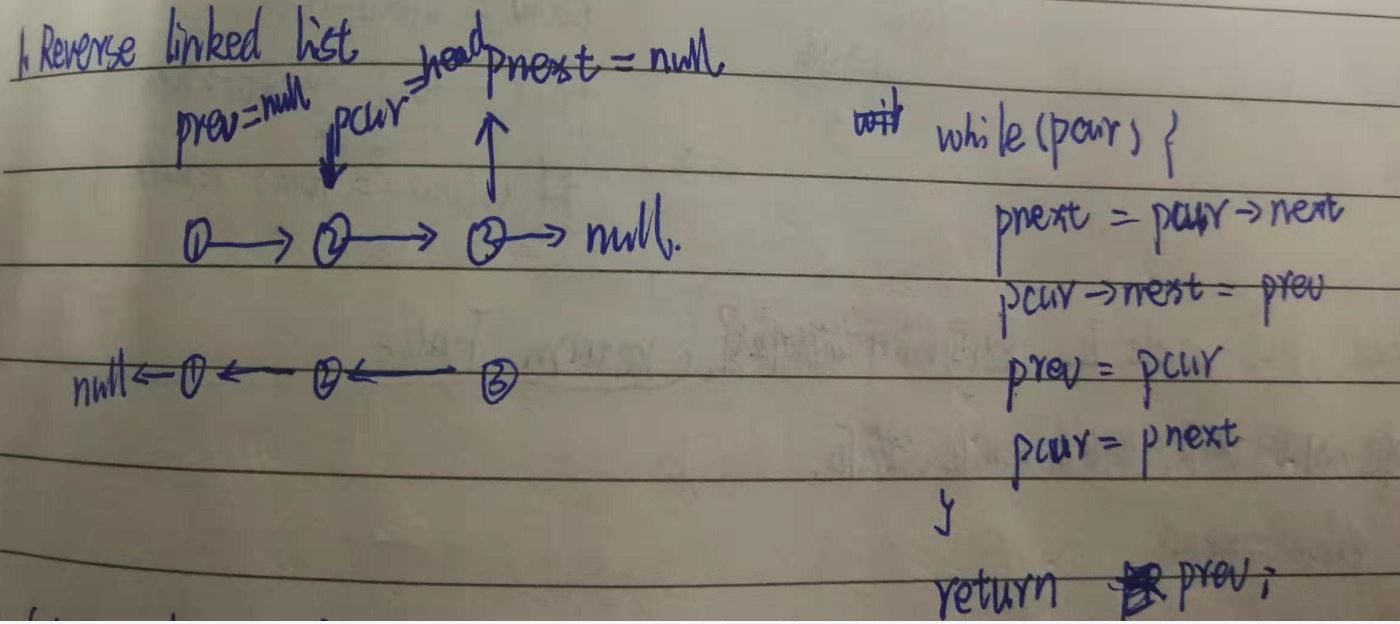 1. Reverse linked list
prev=null pcur=head pnext = null
① → ② → ③ → null.
null ← ① ← ② ← ③
while(pcur) {
pnext = pcur→next
pcur→next = prev
prev = pcur
pcur = pnext
}
return prev;